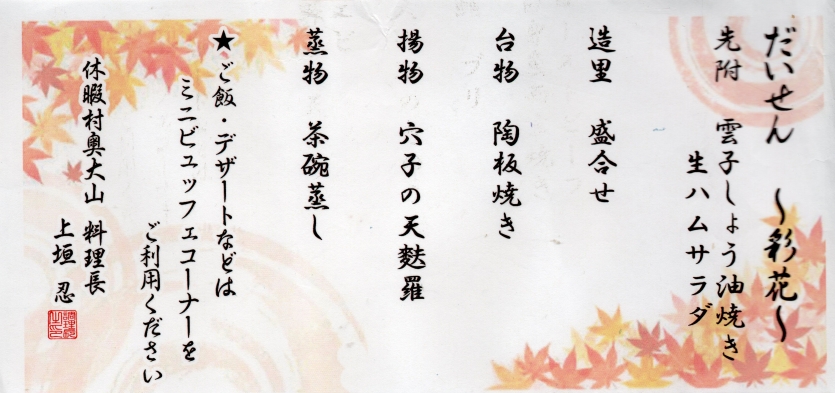 だいせん 〜彩花〜
先附 雲子しょう油焼き
生ハムサラダ
造里 盛合せ
台物 陶板焼き
揚物 穴子の天麩羅
蒸物 茶碗蒸し
★ご飯・デザートなどは
ミニビュッフェコーナーを
ご利用ください
休暇村奥大山 料理長
上垣 忍